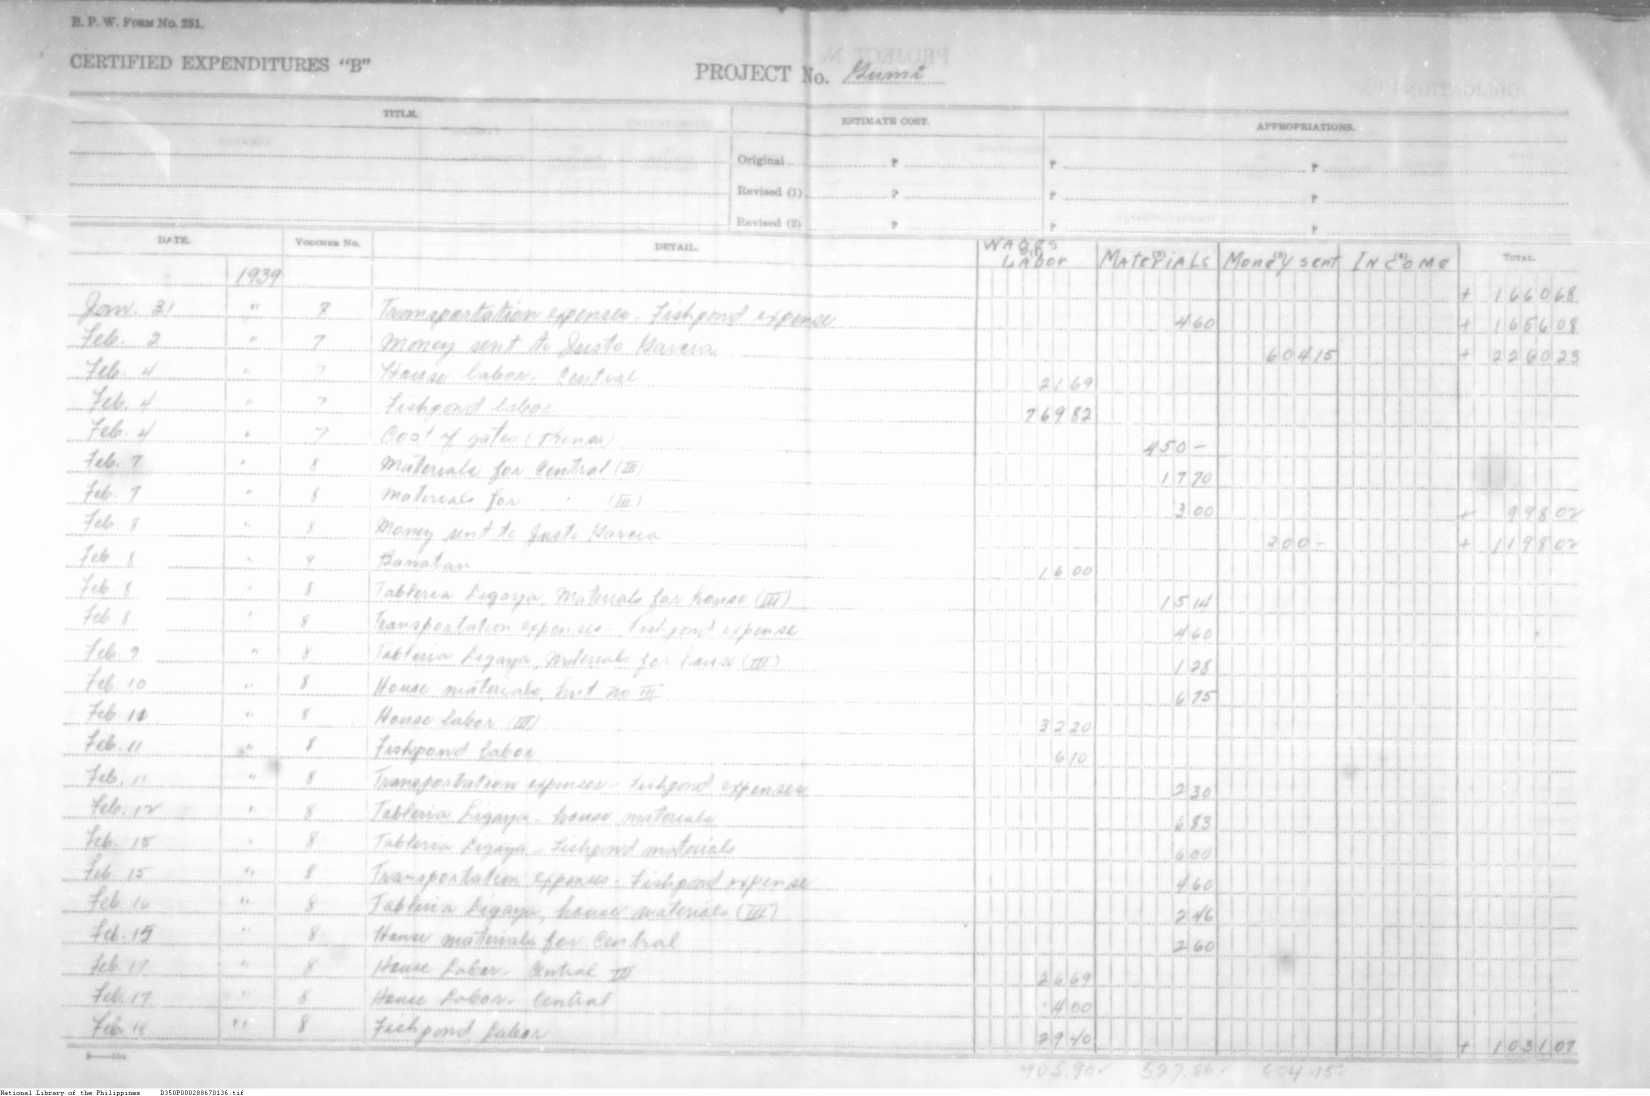 B. P. W. Form No. 251.
CERTIFIED EXPENDITURES "B"
PROJECT No. Gumi
TITLE. ESTIMATE COST. APPROPRIATIONS.
Original ₱ ₱ ₱
Revised (1) ₱ ₱ ₱
Revised (2) ₱ ₱ ₱
DATE. Voucher No. DETAIL. Wages Labor Materials Money sent Income Total.
1939 + 1660 68
Jan. 31 " 7 Transportation expenses - Fishpond expense 4 60 + 1656 08
Feb. 2 " 7 Money sent to Justo Garcia 604 15 + 2260 23
Feb. 4 " 7 House labor, Central 21 69
Feb. 4 " 7 Fishpond labor 769 82
Feb. 4 " 7 Cost of gates 450 -
Feb. 7 " 8 Materials for Central (III) 17 70
Feb. 7 " 8 Materials for " (III) 3 00 + 998 02
Feb. 8 " 8 Money sent to Justo Garcia 200 - + 1198 02
Feb 8 " 9 Banatan 16 00
Feb. 8 " 8 Tableria Ligaya, Materials for house (III) 15 14
Feb 8 " 8 Transportation expenses - Fishpond expense 4 60
Feb. 9 " 8 Tableria Ligaya, Materials for house (III) 1 28
Feb. 10 " 8 House materials, hut no III 6 75
Feb 11 " 8 House labor (III) 32 20
Feb. 11 " 8 Fishpond labor 6 10
Feb. 11 " 8 Transportation expenses - Fishpond expenses 2 30
Feb. 12 " 8 Tableria Ligaya - house materials 6 83
Feb. 15 " 8 Tableria Ligaya - Fishpond materials 6 00
Feb. 15 " 8 Transportation expenses - Fishpond expense 4 60
Feb. 16 " 8 Tableria Ligaya, house materials (III) 2 46
Feb. 15 " 8 House materials for Central 2 60
Feb. 17 " 8 House Labor - Central III 26 69
Feb. 17 " 8 House Labor. Central 4 00
Feb. 18 " 8 Fishpond Labor 29 40 + 1031 07
905.90 527.86 604.15
National Library of the Philippines D350P0002BB67D136.tif